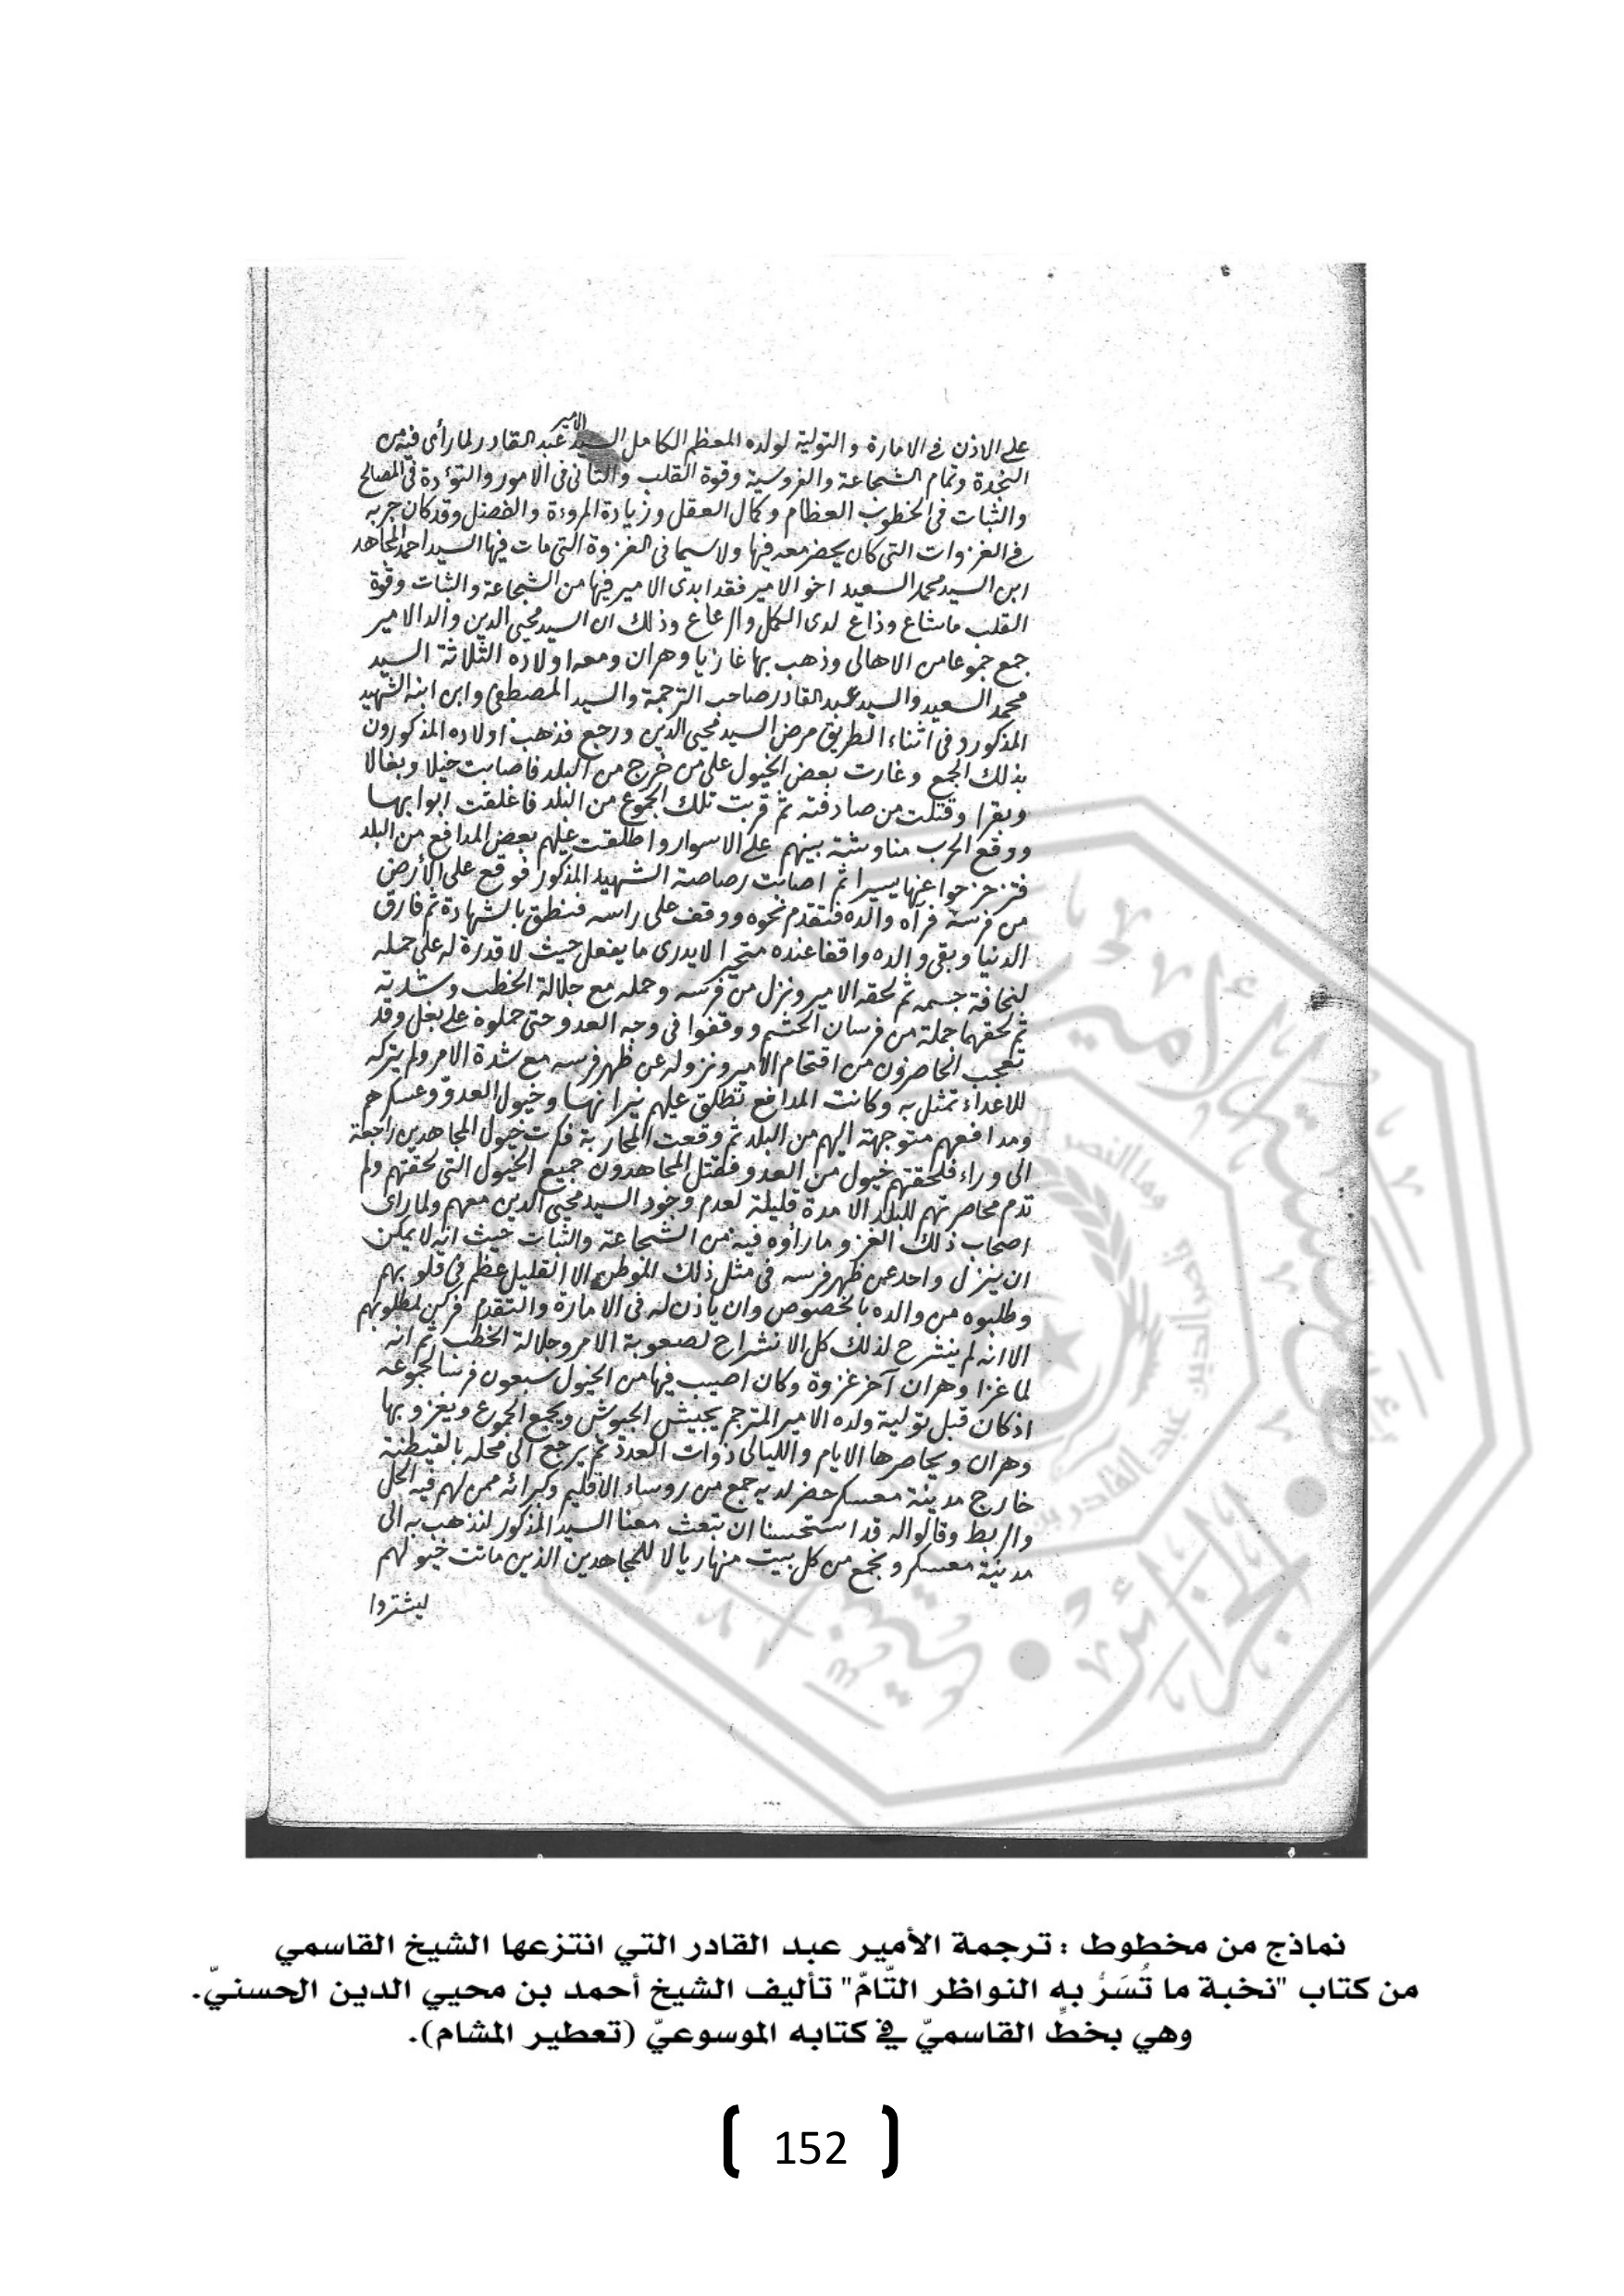 على الاذن في الامارة والتولية لولده المعظم الكامل السيد الامير عبد القادر لما رأى فيه من
النجدة وتمام الشجاعة والفروسية وقوة القلب والتأنى فى الامور والتؤدة فى المصالح
والثبات فى الخطوب العظام وكمال العقل وزيادة المروءة والفضل وقد كان جربه
في الغزوات التى كان يحضر معه فيها ولا سيما فى الغزوة التى مات فيها السيد احمد المجاهد
ابن السيد محمد السعيد اخو الامير فقد ابدى الامير فيها من الشجاعة والثبات وقوة
القلب ما شاع وذاع لدى الكل والرعاع وذلك ان السيد محيى الدين والد الامير
جمع جموعا من الاهالى وذهب بها غازيا وهران ومعه اولاده الثلاثة السيد
محمد السعيد والسيد عبد القادر صاحب الترجمة والسيد المصطفى وابن ابنه الشهيد
المذكور وفى اثناء الطريق مرض السيد محيى الدين ورجع فذهب اولاده المذكورون
بذلك الجمع وغارت بعض الخيول على من خرج من البلد فاصابت خيلا وبغالا
وبقرا وقتلت من صادفته ثم قربت تلك الجموع من البلد فاغلقت ابوابها
ووقع الحرب مناوشة بينهم على الاسوار واطلقت عليهم بعض المدافع من البلد
فتزحزحوا عنها يسيرا ثم اصابت رصاصة الشهيد المذكور فوقع على الأرض
من فرسه فرآه والده فتقدم نحوه ووقف على راسه فنطق بالشهادة ثم فارق
الدنيا وبقى والده واقفا عنده متحيرا لا يدرى ما يفعل حيث لا قدرة له على حمله
لنحافة جسمه ثم لحقه الامير ونزل من فرسه وحمله مع جلالة الخطب وشدته
ثم لحقهما جملة من فرسان الحشم ووقفوا فى وجه العدو حتى حملوه على بغل وقد
تعجب الحاضرون من اقتحام الأمير ونزوله عن ظهر فرسه مع شدة الامر ولم يتركه
للاعداء تمثل به وكانت المدافع تطلق عليهم نيرانها وخيول العدوّ وعسكرهم
ومدافعهم متوجهة اليهم من البلد ثم وقعت المحاربة فكرت خيول المجاهدين راجعة
الى وراء فلحقتهم خيول من العدو فقتل المجاهدون جميع الخيول التى لحقتهم ولم
تدم محاصرتهم للبلد الا مدة قليلة لعدم وجود السيد محيى الدين معهم ولما راى
اصحاب ذلك الغزو ما رأوه فيه من الشجاعة والثبات حيث انه لا يمكن
ان ينزل واحد عن ظهر فرسه فى مثل ذلك الموطن الا القليل عظم فى قلوبهم
وطلبوه من والده بالخصوص وان ياذن له فى الامارة والتقدم فركن لمطلوبهم
الا انه لم ينشرح لذلك كل الانشراح لصعوبة الامر وجلالة الخطب ثم انه
لما غزا وهران آخر غزوة وكان اصيب فيها من الخيول سبعون فرسا لجموعه
اذ كان قبل تولية ولده الامير المترجم يجيش الجيوش ويجمع الجموع ويغزو بها
وهران ويحاصرها الايام والليالى ذوات العدد ثم يرجع الى محله بالقيطنة
خارج مدينة معسكر حضر لديه جمع من روساء الاقليم وكبرائه ممن لهم فيه الحل
والربط وقالوا له قد استحسنا ان تبعث معنا السيد المذكور لنذهب به الى
مدينة معسكر ونجمع من كل بيت منها ريالا للمجاهدين الذين ماتت خيولهم
ليشتروا
نماذج من مخطوط : ترجمة الأمير عبد القادر التي انتزعها الشيخ القاسمي
من كتاب "نخبة ما تُسَرُّ به النواظر التّامّ" تأليف الشيخ أحمد بن محيي الدين الحسنيّ.
وهي بخطِّ القاسميّ في كتابه الموسوعيّ (تعطير المشام).
152